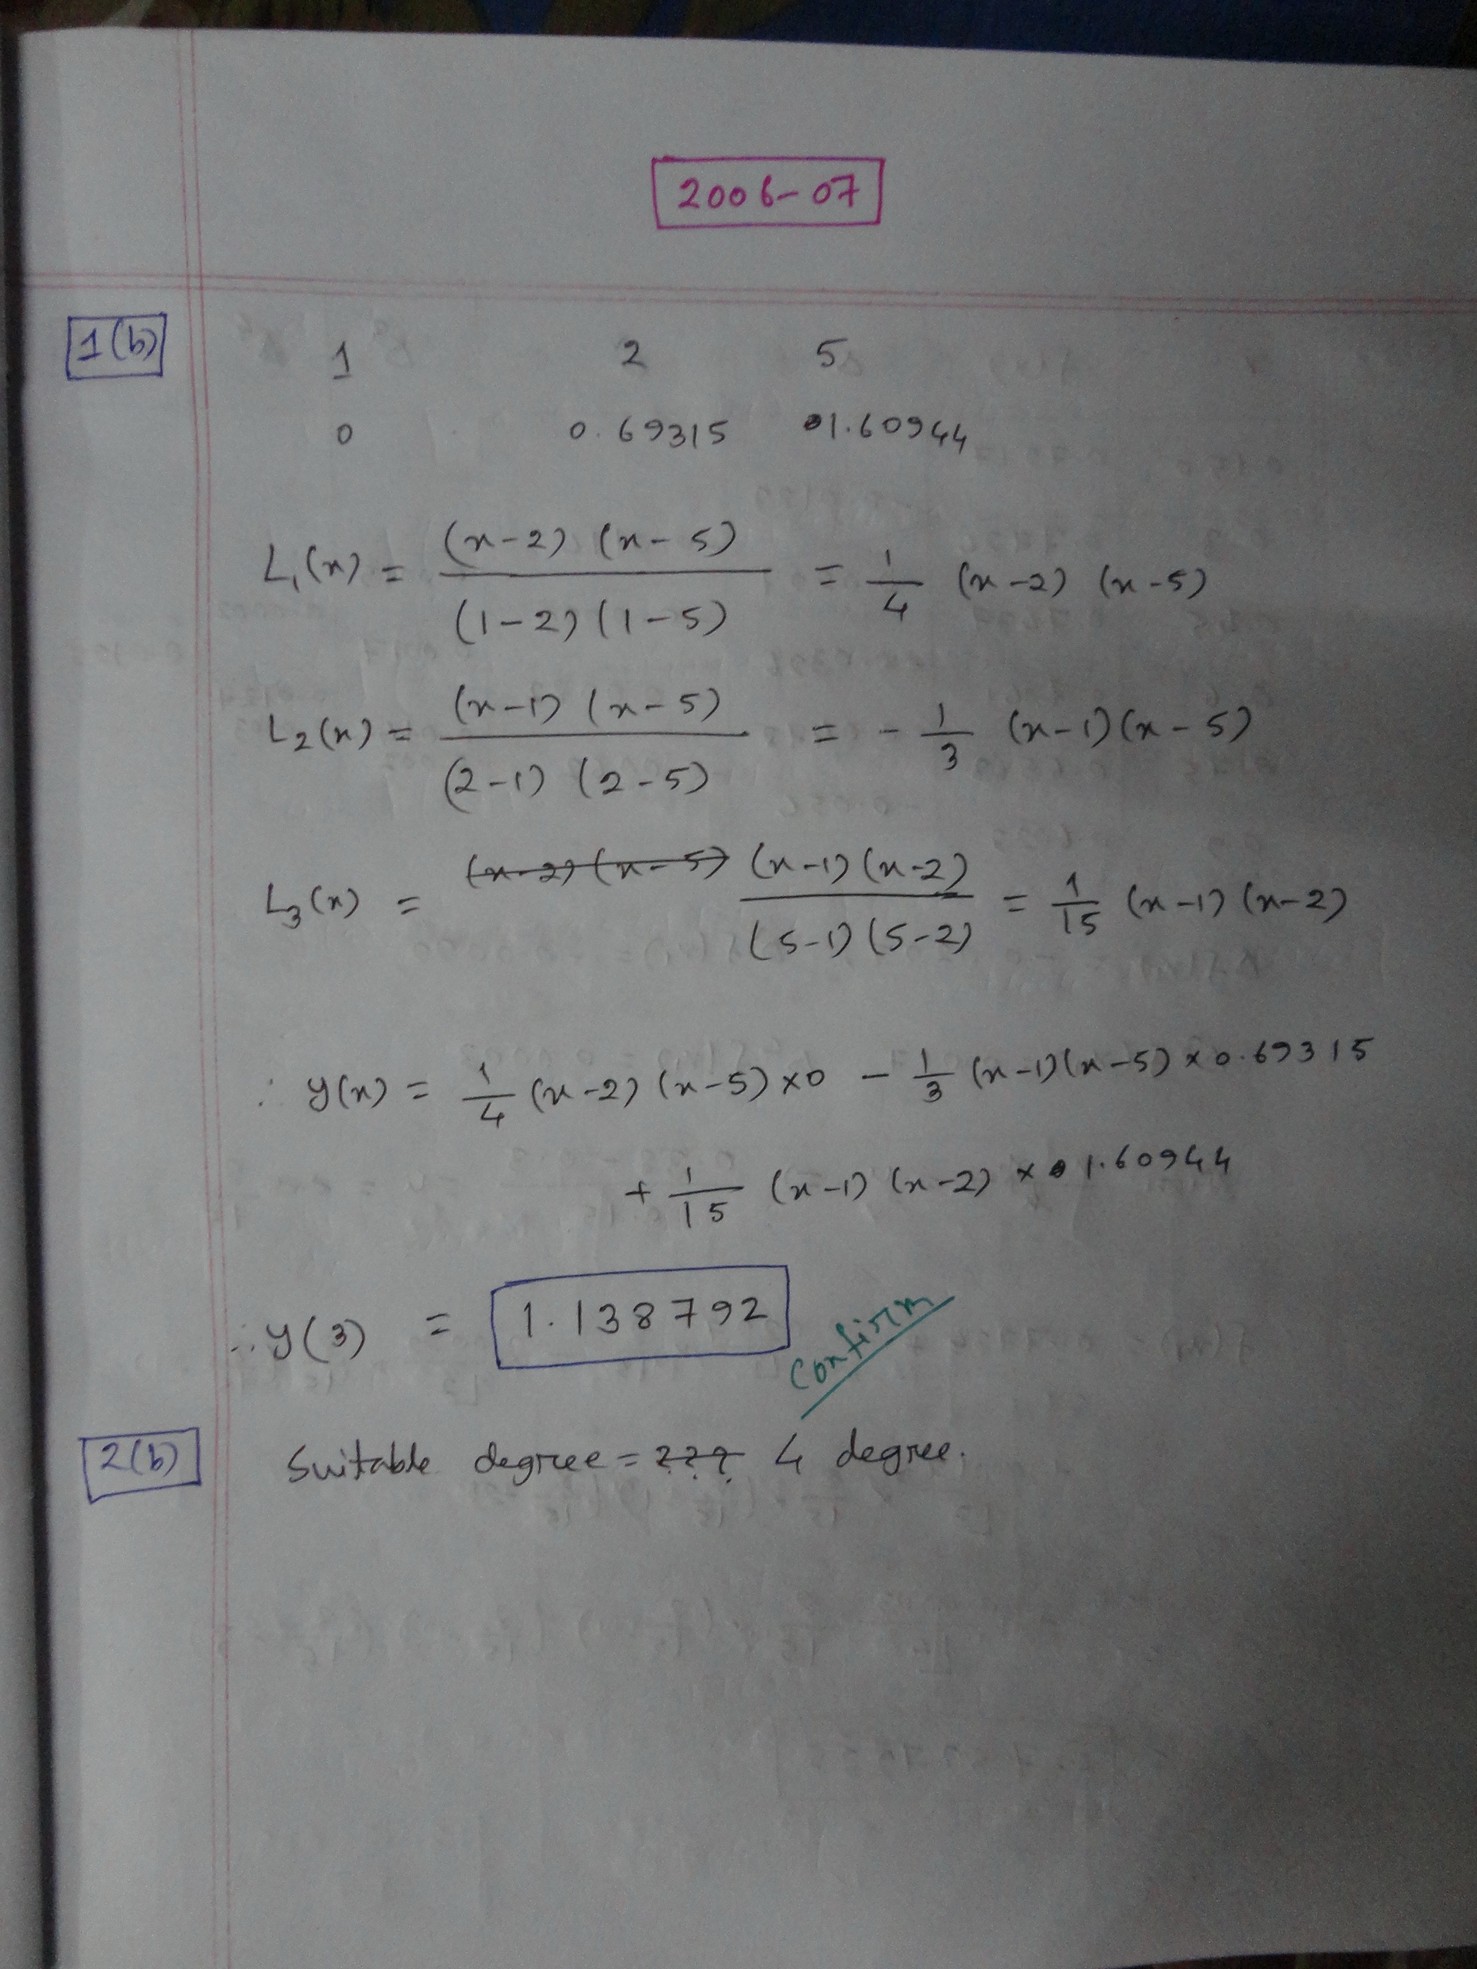 2006-07
1(b)
1 2 5
0 0.69315 1.60944
L₁(x) = (x-2) (x-5) / (1-2) (1-5) = 1/4 (x-2) (x-5)
L₂(x) = (x-1) (x-5) / (2-1) (2-5) = - 1/3 (x-1) (x-5)
L₃(x) = (x-2) (x-5) (x-1) (x-2) / (5-1) (5-2) = 1/15 (x-1) (x-2)
∴ y(x) = 1/4 (x-2) (x-5) ×0 - 1/3 (x-1) (x-5) × 0.69315
+ 1/15 (x-1) (x-2) × 1.60944
∴ y(3) = 1.138792
Confirm
2(b) Suitable degree = ??? 4 degree.